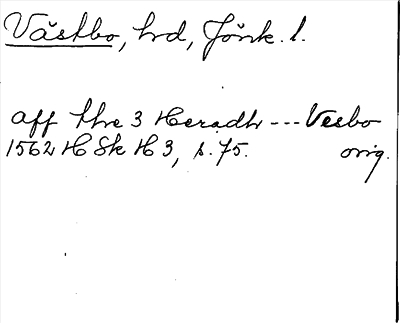 Västbo, hrd, Jönk. l.
aff thre 3 Heradh --- Vesbo
1562 H Sk H 3, s. 75. orig.